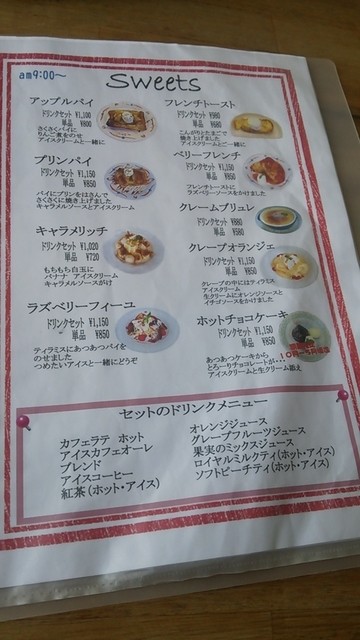 am9:00～
Sweets
アップルパイ
ドリンクセット ¥1,100
単品 ¥800
さくさくパイに
りんご煮をのせ
アイスクリームと一緒に
プリンパイ
ドリンクセット ¥1,150
単品 ¥850
パイにプリンをはさんで
さくさくに焼き上げました
キャラメルソースとアイスクリーム
キャラメリッチ
ドリンクセット ¥1,020
単品 ¥720
もちもち白玉に
バナナ アイスクリーム
キャラメルソースがけ
ラズベリーフィーユ
ドリンクセット ¥1,150
単品 ¥850
ティラミスにあつあつパイを
のせました
つめたいアイスと一緒にどうぞ
フレンチトースト
ドリンクセット
単品
こんがりとたまごで
焼き上げました
アイスクリームとご一緒に
ベリーフレンチ
ドリンクセット ¥1,150
単品 ¥850
フレンチトーストに
ラズベリーソースをかけました
クレームブリュレ
ドリンクセット ¥880
単品 ¥580
クレープオランジェ
ドリンクセット ¥1,150
単品 ¥850
クレープの中にはティラミス
アイスクリーム
生クリームにオレンジソースと
イチゴソースをかけました
ホットチョコケーキ
ドリンクセット ¥1,150
単品 ¥850
あつあつケーキから
とろーりチョコレートが・・・
アイスクリームと生クリーム添え
セットのドリンクメニュー
カフェラテ ホット
アイスカフェオーレ
ブレンド
アイスコーヒー
紅茶（ホット・アイス）
オレンジジュース
グレープフルーツジュース
果実のミックスジュース
ロイヤルミルクティ（ホット・アイス）
ソフトピーチティ（ホット・アイス）